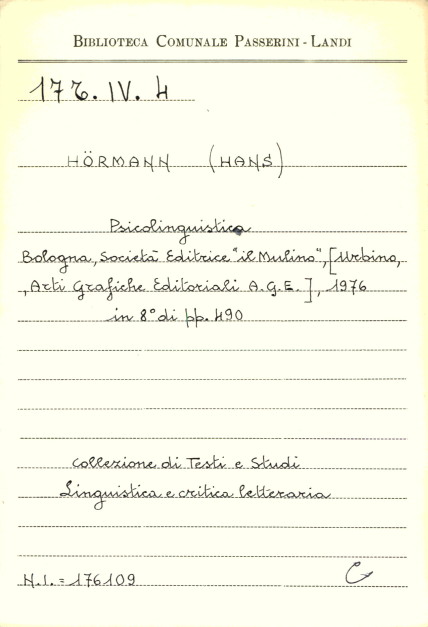 BIBLIOTECA COMUNALE PASSERINI - LANDI
17Z. IV. 4
HÖRMANN (HANS)
Psicolinguistica
Bologna, Società Editrice "il Mulino", [Urbino,
, Arti Grafiche Editoriali A.G.E.], 1976
in 8° di pp. 490
Collezione di Testi e Studi
Linguistica e critica letteraria
N.I. = 176109
G